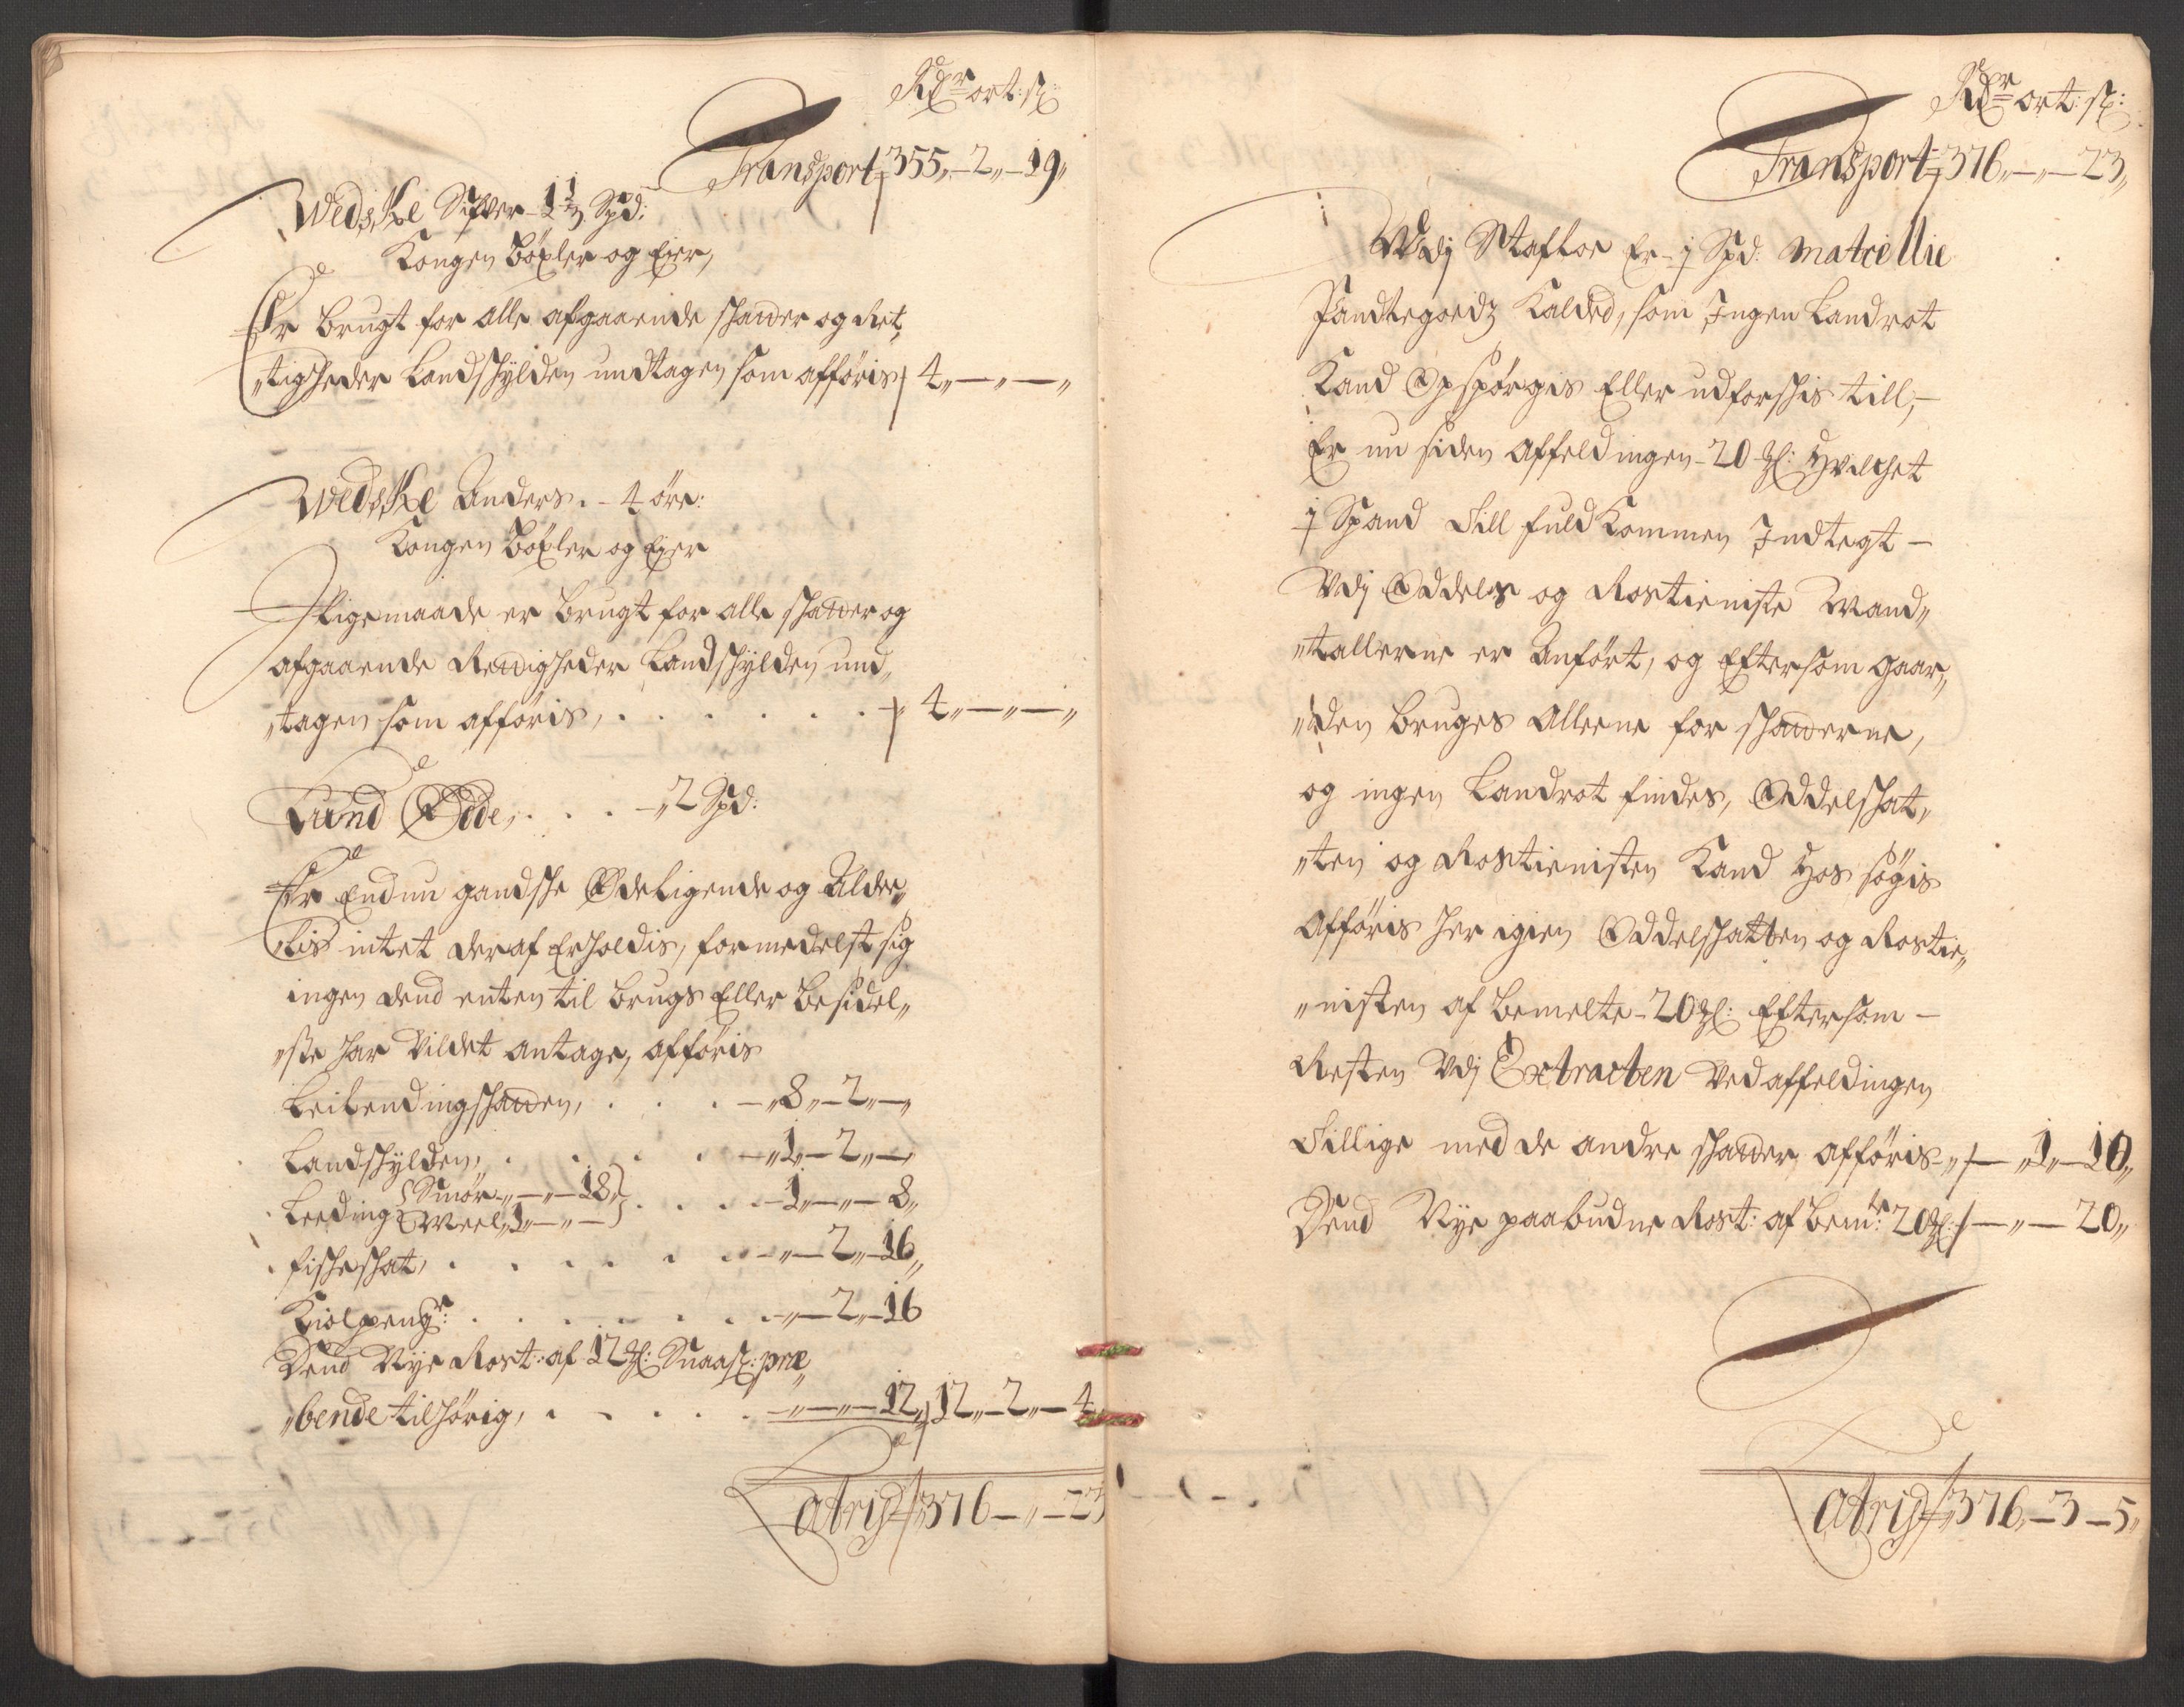 Rdr ort: sk:
Transport 355„ - 2„ - 19„
Wedske Sifver - 1 1/2 Spd:
Kongen böxler og Eier,
Er brugt for alle afgaaende schatter og Ret„
„tigheder Landschylden undtagen som afføris 4„ - „ - „
Wedske Anders. - 4 öre:
Kongen böxler og Eier
Ligemaade er brugt for alle schatter og
afgaaende Rettigheder Landschylden und„
„tagen som afføris, . . . . . . 4„ - „ - „
Lund Øde, . . . - „ 2 Spd:
Er Endnu gandsche Øde Ligende og Alde„
„lis intet deraf Erholdis, formedelst sig
ingen dend enten til brugs Eller besidel„
„se har Vildet antage, afføris
Leilendingschatten, . . . - „ 8„ - 2„ - „
Landschylden, . . . . - „ 1„ - 2„ - „
Leeding Smör „ - „ - 18„
Meel „ 1„ - „ - . . . - 1„ - „ - 8„
fischeschat, . . . . . . - „ - 2„ - 16„
Kiølpeng: . . . . . . - „ - 2„ - 16
Dend Nye Rost: af 12 : Snaas: præ„
„bende tilhørig, . . . . . - „ - „ - 12„ 12„ - 2„ - 4
Latris 376 - „ - 23
Rdr ort: sk:
Transport 376„ - „ - 23„
Udj Stafloe Er - j Spd: Matcellie
Pandtegoedz Kalded, som Ingen Landrot
Kand Opspørgis Eller udforschis till, -
Er nu siden affeldingen - 20 : Hvilchet
j Spand Till fuldkommen Indtegt -
Udj Oddels og Rostieniste Mand„
„tallerne er Anført, og Eftersom gaar„
„den bruges Alleene for schatterne,
og ingen Landrot findes, Oddelschat„
„ten og Rostienisten Kand Hos søgis
Afføris her igien Oddelschatten og Rostie„
„nisten af bemelte - 20 : Eftersom -
Resten Udj Extracten Ved affeldingen
Tillige med de andre schatter afføris „ - „ 1„ - 10„
Dend Nye paabudne Rost: af bemte: 20 : - „ - 20„
Latris 376„ - 3 - 5„